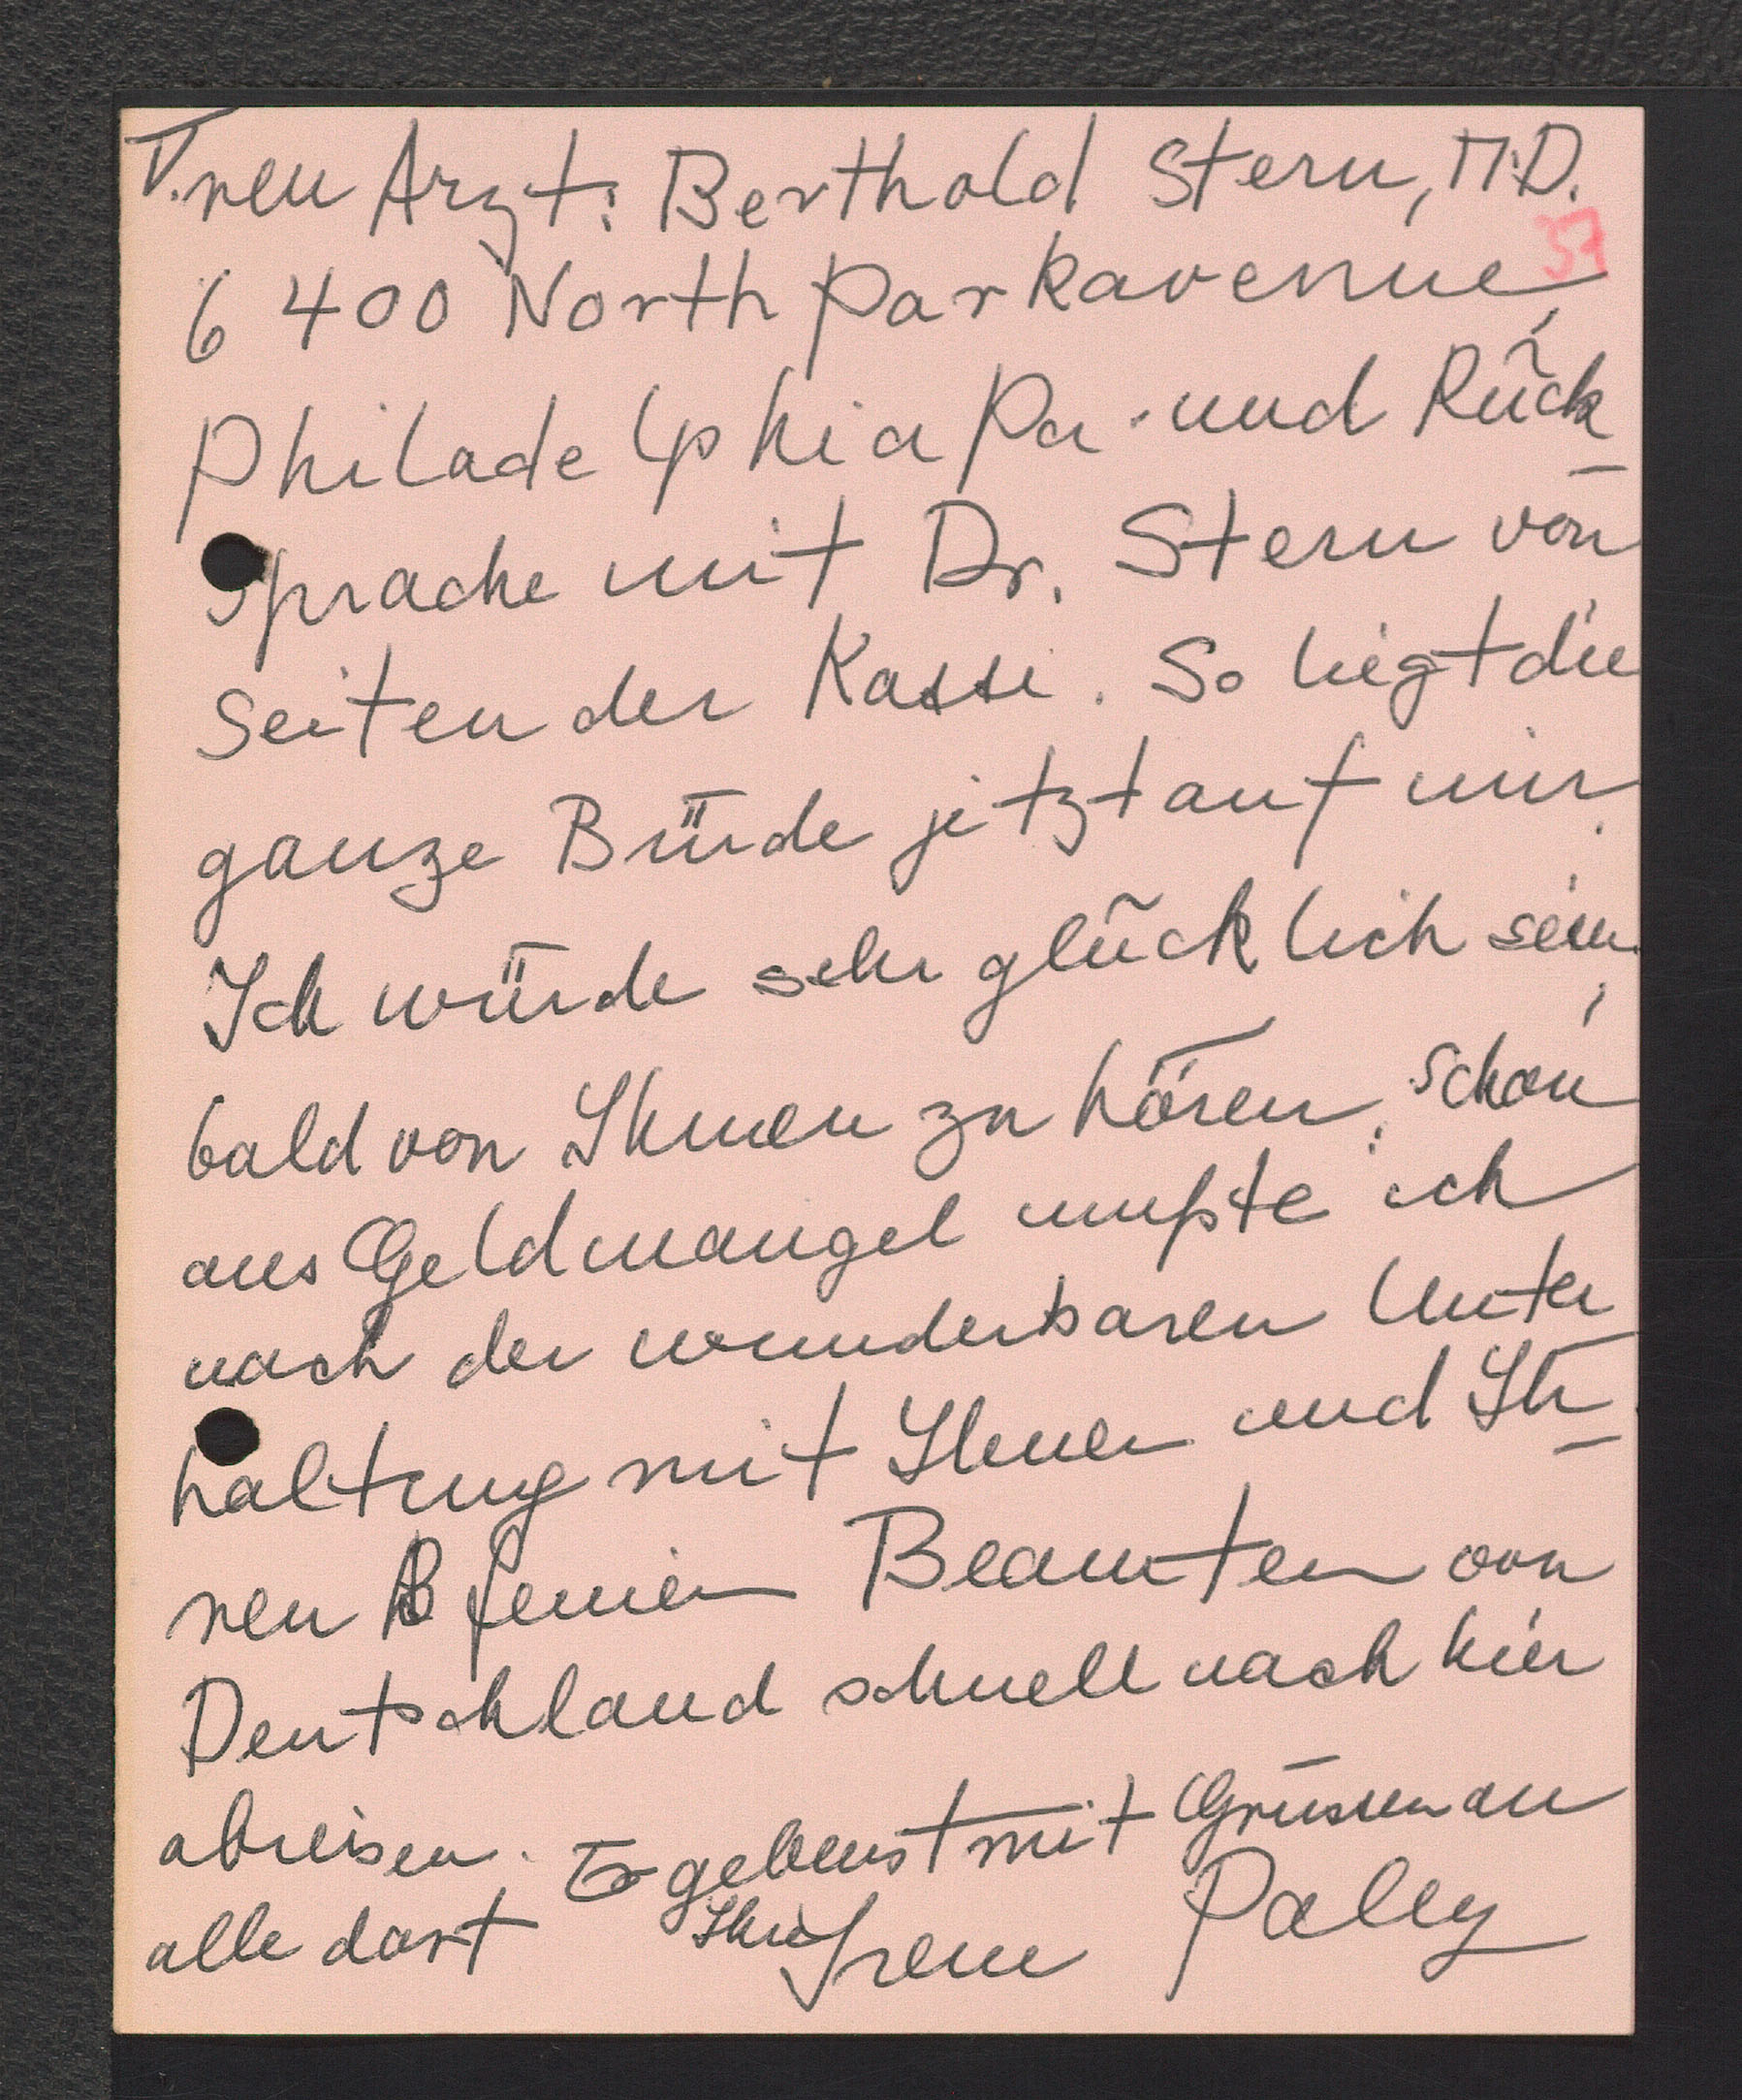 V.
ren Arzt: Berthold Stern, M.D.
37
6400 North Parkavenue,
Philadelphia Pa. und Rück-
sprache mit Dr. Stern von
Seiten der Kasse. So liegt die
ganze Bürde jetzt auf mir.
Ich würde sehr glücklich sein,
bald von Ihnen zu hören. Schon
aus Geldmangel mußte ich
nach der wunderbaren Unter
haltung mit Ihnen und Ih-
ren feinen Beamten von
Deutschland schnell nach hier
abreisen. Ergebenst mit Grüssen an
alle dort Ihre Irene Paley